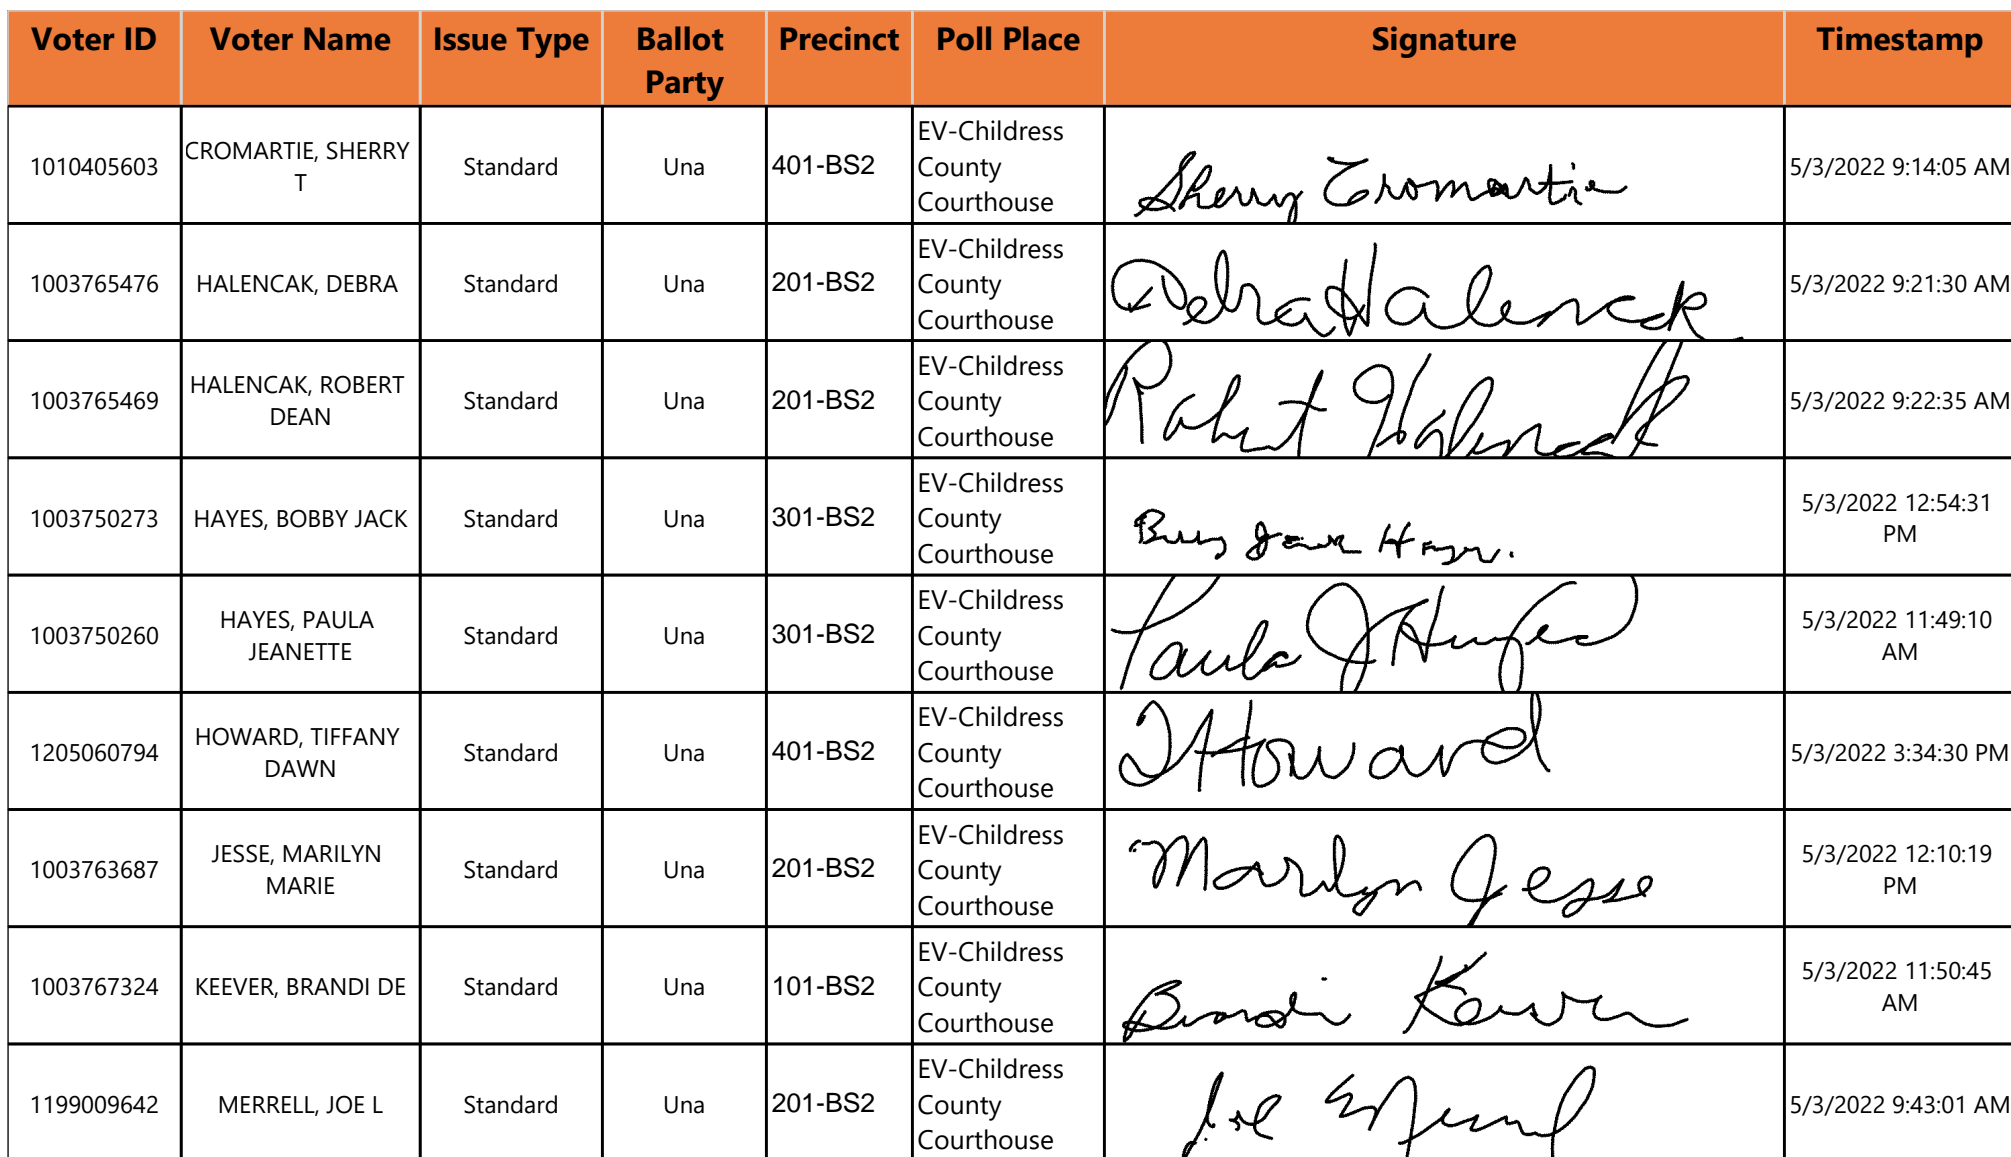 Voter ID Voter Name Issue Type Ballot Party Precinct Poll Place Signature Timestamp
1010405603 CROMARTIE, SHERRY T Standard Una 401-BS2 EV-Childress County Courthouse Sherry Cromartie 5/3/2022 9:14:05 AM
1003765476 HALENCAK, DEBRA Standard Una 201-BS2 EV-Childress County Courthouse Debra Halencak 5/3/2022 9:21:30 AM
1003765469 HALENCAK, ROBERT DEAN Standard Una 201-BS2 EV-Childress County Courthouse Robert Halencak 5/3/2022 9:22:35 AM
1003750273 HAYES, BOBBY JACK Standard Una 301-BS2 EV-Childress County Courthouse 5/3/2022 12:54:31 PM
1003750260 HAYES, PAULA JEANETTE Standard Una 301-BS2 EV-Childress County Courthouse Paula J Hayes 5/3/2022 11:49:10 AM
1205060794 HOWARD, TIFFANY DAWN Standard Una 401-BS2 EV-Childress County Courthouse T Howard 5/3/2022 3:34:30 PM
1003763687 JESSE, MARILYN MARIE Standard Una 201-BS2 EV-Childress County Courthouse Marilyn Jesse 5/3/2022 12:10:19 PM
1003767324 KEEVER, BRANDI DE Standard Una 101-BS2 EV-Childress County Courthouse Brandi Keever 5/3/2022 11:50:45 AM
1199009642 MERRELL, JOE L Standard Una 201-BS2 EV-Childress County Courthouse Joe Merrell 5/3/2022 9:43:01 AM